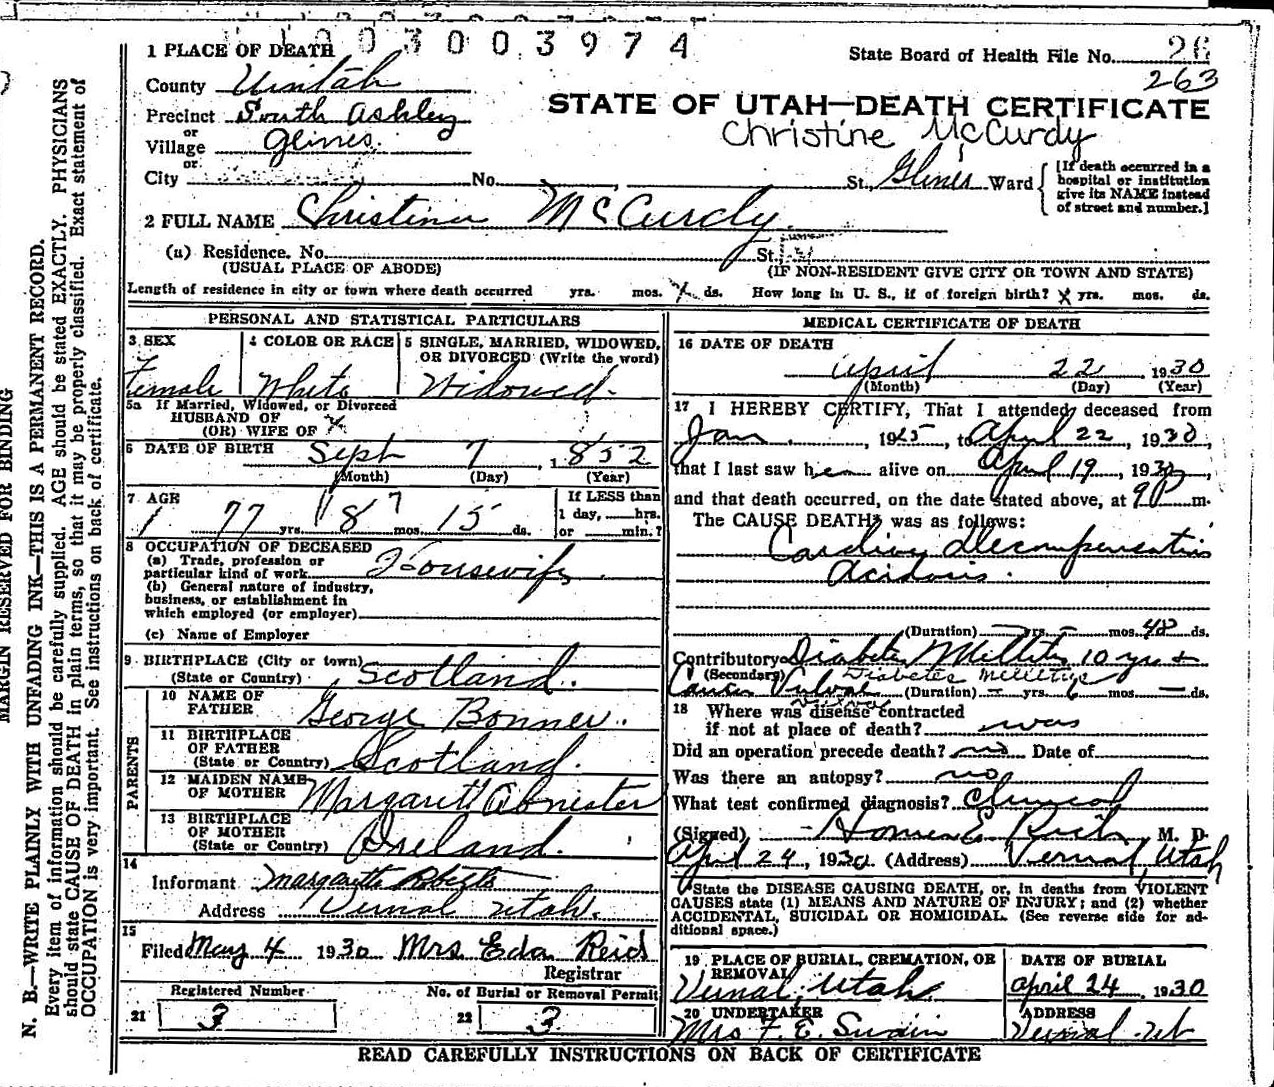 1003003974
State Board of Health File No. 26
263
1 PLACE OF DEATH
County Uintah
STATE OF UTAH—DEATH CERTIFICATE
Precinct South Ashley
Christine McCurdy
or
Village Glines.
or
City No. St., Glines Ward
[If death occurred in a
hospital or institution
give its NAME instead
of street and number.]
2 FULL NAME Christina McCurdy
(a) Residence. No. St.,
(USUAL PLACE OF ABODE) (IF NON-RESIDENT GIVE CITY OR TOWN AND STATE)
Length of residence in city or town where death occurred yrs. mos. ds. How long in U. S., if of foreign birth? x yrs. mos. ds.
PERSONAL AND STATISTICAL PARTICULARS
3 SEX 4 COLOR OR RACE 5 SINGLE, MARRIED, WIDOWED,
OR DIVORCED (Write the word)
Female White Widowed.
5a If Married, Widowed, or Divorced
HUSBAND OF
(OR) WIFE OF x
6 DATE OF BIRTH Sept 7, 1852
(Month) (Day) (Year)
7 AGE
77 yrs. 8 7 mos. 15 ds.
If LESS than
1 day, hrs.
or min.?
8 OCCUPATION OF DECEASED
(a) Trade, profession or
particular kind of work Housewife
(b) General nature of industry,
business, or establishment in
which employed (or employer)
(c) Name of Employer
9 BIRTHPLACE (City or town)
(State or Country) Scotland.
PARENTS
10 NAME OF
FATHER George Bonner.
11 BIRTHPLACE
OF FATHER
(State or Country) Scotland.
12 MAIDEN NAME
OF MOTHER Margarett
13 BIRTHPLACE
OF MOTHER
(State or Country) Ireland.
14
Informant Margarette Roberts
Address Vernal Utah.
15
Filed May 4 1930 Mrs Eda Reid
Registrar
Registered Number No. of Burial or Removal Permit
21 3 22 3
MEDICAL CERTIFICATE OF DEATH
16 DATE OF DEATH
April 22, 1930
(Month) (Day) (Year)
17 I HEREBY CERTIFY, That I attended deceased from
Jan., 1925, to April 22, 1930,
that I last saw her alive on April 19, 1930,
and that death occurred, on the date stated above, at 9P m.
The CAUSE DEATH was as follows:
Cardiac Decompensation
Acidosis.
(Duration) yrs. mos. 48 ds.
Contributory Diabetes Mellitus 10 yrs +
(Secondary) Diabetes Mellitus
Cancer Vulvae (Duration) — yrs. 6 mos. — ds.
Vulvae
18 Where was disease contracted
if not at place of death? was
Did an operation precede death? no Date of
Was there an autopsy? no
What test confirmed diagnosis? Clinical
(Signed) Homer E Rich, M. D.
April 24, 1930. (Address) Vernal, Utah
State the DISEASE CAUSING DEATH, or, in deaths from VIOLENT
CAUSES state (1) MEANS AND NATURE OF INJURY; and (2) whether
ACCIDENTAL, SUICIDAL OR HOMICIDAL. (See reverse side for ad-
ditional space.)
19 PLACE OF BURIAL, CREMATION, OR
REMOVAL
Vernal, Utah.
DATE OF BURIAL
April 24, 1930
20 UNDERTAKER
Mrs F. E. Swain
ADDRESS
Vernal Ut
READ CAREFULLY INSTRUCTIONS ON BACK OF CERTIFICATE
MARGIN RESERVED FOR BINDING
N. B.—WRITE PLAINLY WITH UNFADING INK—THIS IS A PERMANENT RECORD.
Every item of information should be carefully supplied. AGE should be stated EXACTLY. PHYSICIANS
should state CAUSE OF DEATH in plain terms, so that it may be properly classified. Exact statement of
OCCUPATION is very important. See instructions on back of certificate.